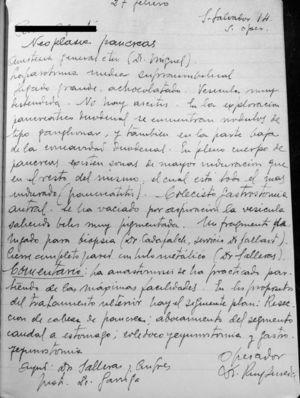 27 febrero
S. Salvador 14
S. oper.
Neoplasia pancreas
Anestesia general eter (Dr. Miguel).
Laparotomia media supraumbilical
Higado grande, achocolatado. Vesicula muy
distendida. No hay ascitis. En la exploracion
pancreatico duodenal se encuentran nodulos de
tipo ganglionar, y tambien en la parte baja
de la concavidad duodenal. En pleno cuerpo de
pancreas existen zonas de mayor induracion que
en el resto del mismo, el cual esta todo el mas
indurado (pancreatitis). Colecisto gastrostomia
antral. Se ha vaciado por aspiracion la vesicula
saliendo bilis muy pigmentada. Un fragmento de
higado para biopsia (Dr Cadafalch, servicio Dr Gallart).
Cierre completo pared en hilo metalico (Dr Salleras).
Comentario: la anastomosis se ha practicado par-
tiendo de las maximas facilidades. En los propositos
del tratamiento ulterior hay el siguiente plan: Resec-
cion de cabeza de pancreas; abocamiento del segmento
caudal a estomago; coledoco yeyunostomia y gastro-
yeyunostomia
Operador
Ayud: Drs Salleras,
Inst. Sr. Garriga
Dr.